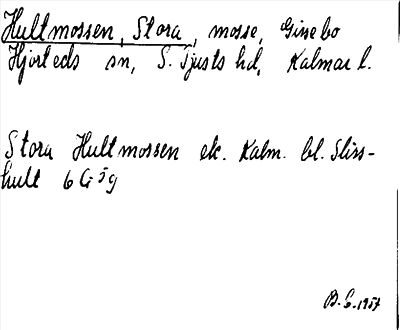 Hultmossen, Stora, mosse, Ginebo
Hjorteds sn, S. Tjusts hd, Kalmar l.
Stora Hultmossen ek. Kalm. bl. Sliss-
hult 6G 5g
B.E. 1957